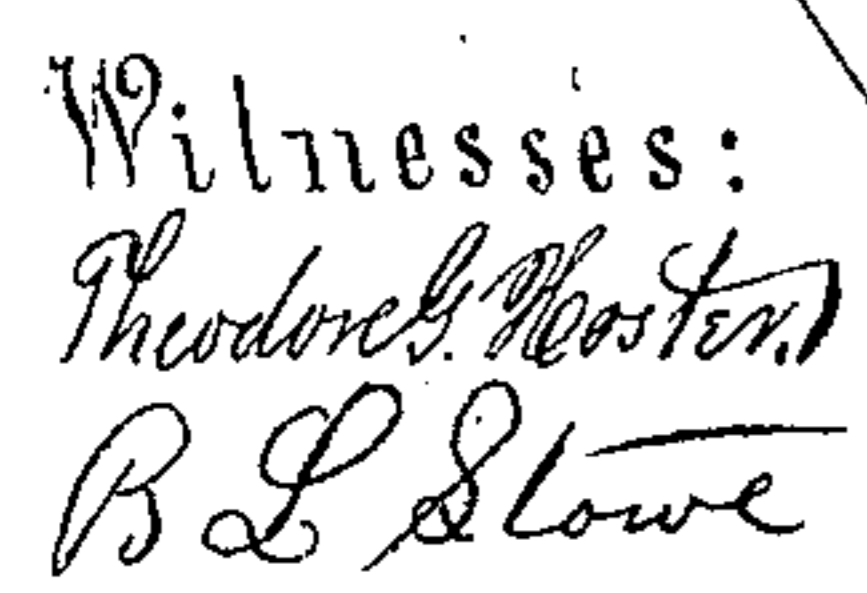 Witnesses:
Theodore G. Hoster.
B L Stowe